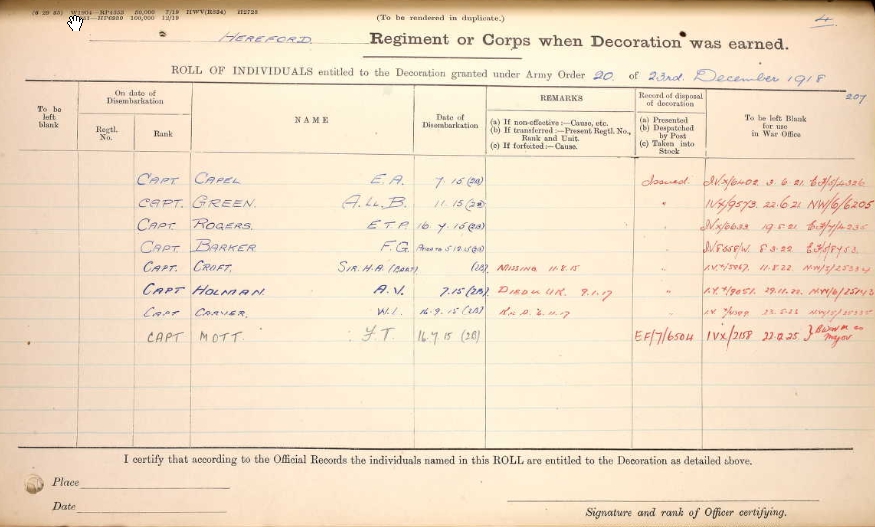 (To be rendered in duplicate.)
4.
HEREFORD. Regiment or Corps when Decoration was earned.
ROLL OF INDIVIDUALS entitled to the Decoration granted under Army Order 20. of 23rd. December 1918
207
To be left blank
On date of Disembarkation
Regtl. No.
Rank
NAME
Date of Disembarkation
REMARKS
(a) If non-effective:—Cause, etc.
(b) If transferred:—Present Regtl. No., Rank and Unit.
(c) If forfeited:—Cause.
Record of disposal of decoration
(a) Presented
(b) Despatched by Post
(c) Taken into Stock
To be left Blank for use in War Office
CAPT CAPEL E.A. 7.15 (2B) Issued. 3.6.21
CAPT. GREEN. A.LL.B. 11.15 (2B) " IVX/9573. 22.6.21 NW/6/6205
CAPT ROGERS. E.T.P. 16.7.15 (2B)
CAPT BARKER F.G. 8.3.22
CAPT. CROFT. SIR.H.A (BART) (2B) MISSING 11.8.15 " 11.8.22
CAPT HOLMAN. A.V. 7.15 (2B) 9.1.17 " 29.11.22
CAPT CARVER. W.L. 16.7.15 (2B) 6.11.17
CAPT MOTT. F.T. 16.7.15 (2B) EF/7/6504 IVX/2158 Major
I certify that according to the Official Records the individuals named in this ROLL are entitled to the Decoration as detailed above.
Place
Date
Signature and rank of Officer certifying.